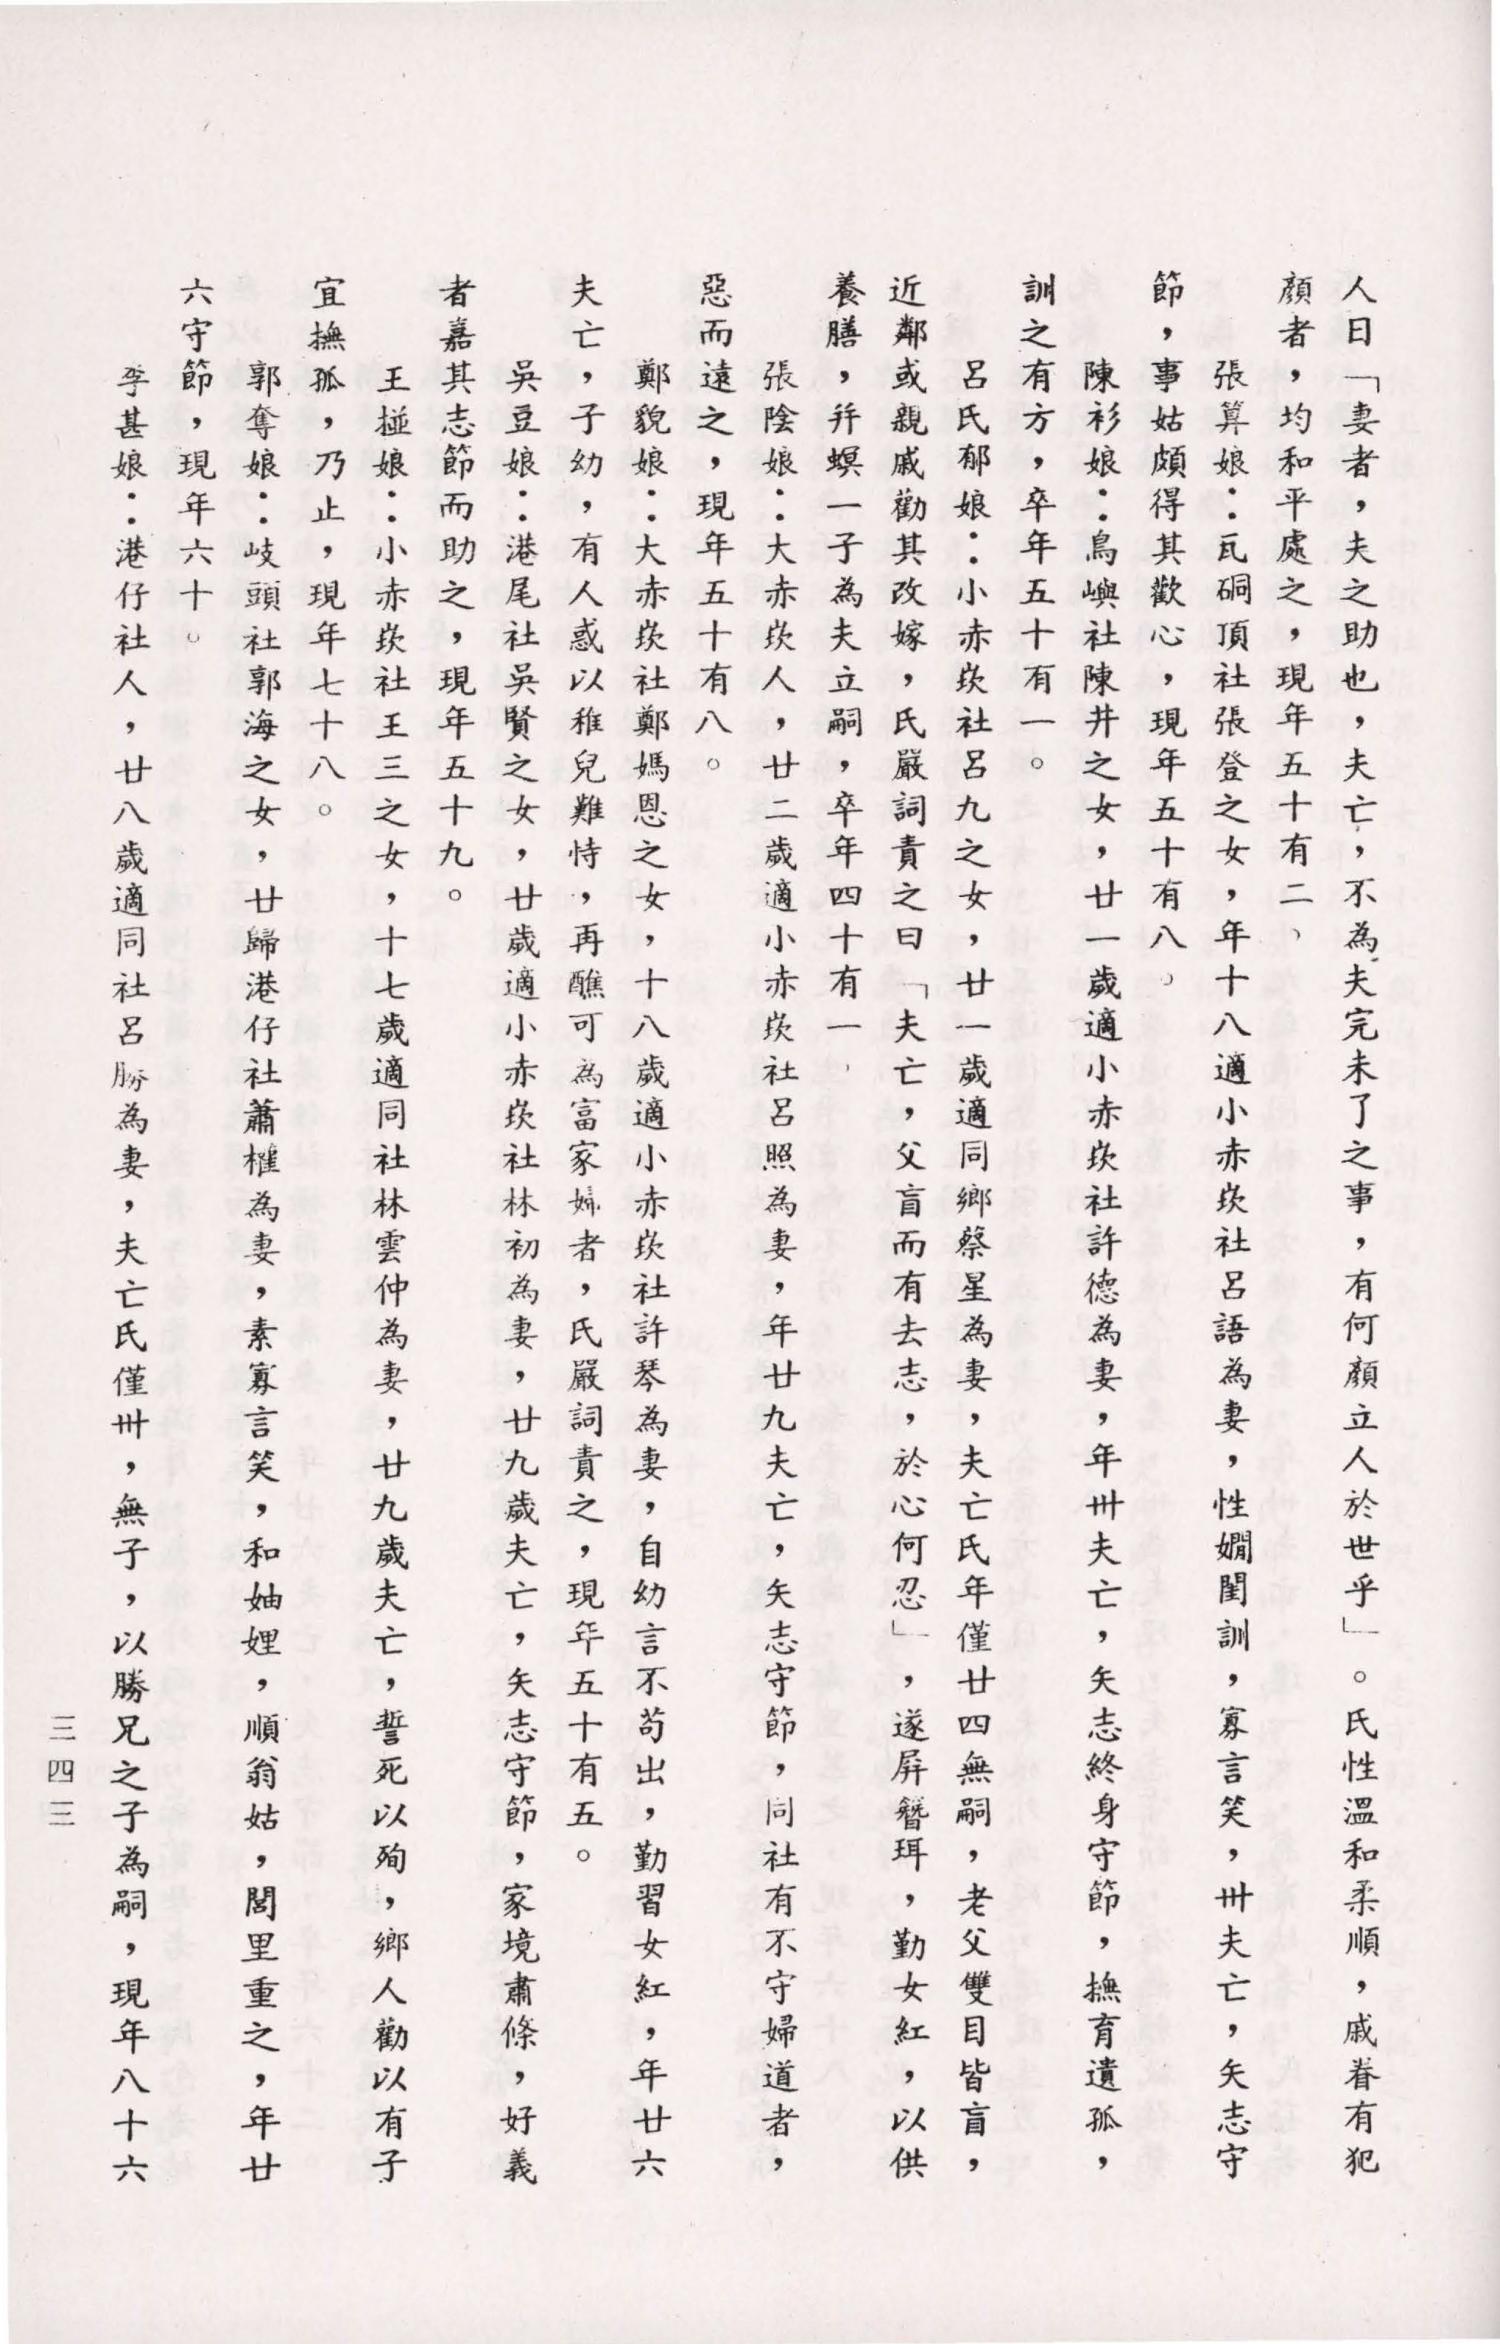 人曰「妻者，夫之助也，夫亡，不為夫完未了之事，有何顏立人於世乎」。氏性溫和柔順，戚眷有犯
顏者，均和平處之，現年五十有二、
張算娘：瓦硐頂社張登之女，年十八適小赤崁社呂語為妻，性嫺閨訓，寡言笑，卅夫亡，矢志守
節，事姑頗得其歡心，現年五十有八。
陳衫娘：鳥嶼社陳井之女，廿一歲適小赤崁社許德為妻，年卅夫亡，矢志終身守節，撫育遺孤，
訓之有方，卒年五十有一。
呂氏郁娘：小赤崁社呂九之女，廿一歲適同鄉蔡星為妻，夫亡氏年僅廿四無嗣，老父雙目皆盲，
近鄰或親戚勸其改嫁，氏嚴詞責之曰「夫亡，父盲而有去志，於心何忍」，遂屏簪珥，勤女紅，以供
養膳，并螟一子為夫立嗣，卒年四十有一、
張陰娘：大赤崁人，廿二歲適小赤崁社呂照為妻，年廿九夫亡，矢志守節，同社有不守婦道者，
惡而遠之，現年五十有八。
鄭貌娘：大赤崁社鄭媽恩之女，十八歲適小赤崁社許琴為妻，自幼言不苟出，勤習女紅，年廿六
夫亡，子幼，有人惑以稚兒難恃，再醮可為富家婦者，氏嚴詞責之，現年五十有五。
吳豆娘：港尾社吳賢之女，廿歲適小赤崁社林初為妻，廿九歲夫亡，矢志守節，家境肅條，好義
者嘉其志節而助之，現年五十九。
王椪娘：小赤崁社王三之女，十七歲適同社林雲仲為妻，廿九歲夫亡，誓死以殉，鄉人勸以有子
宜撫孤，乃止，現年七十八。
郭奪娘：岐頭社郭海之女，廿歸港仔社蕭權為妻，素寡言笑，和妯娌，順翁姑，閭里重之，年廿
六守節，現年六十。
李甚娘：港仔社人，廿八歲適同社呂勝為妻，夫亡氏僅卅，無子，以勝兄之子為嗣，現年八十六
三四三